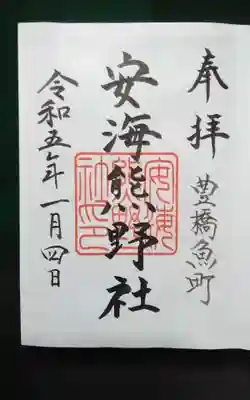 奉拝
豊橋魚町
安海熊野社
安海熊野社印
令和五年一月四日